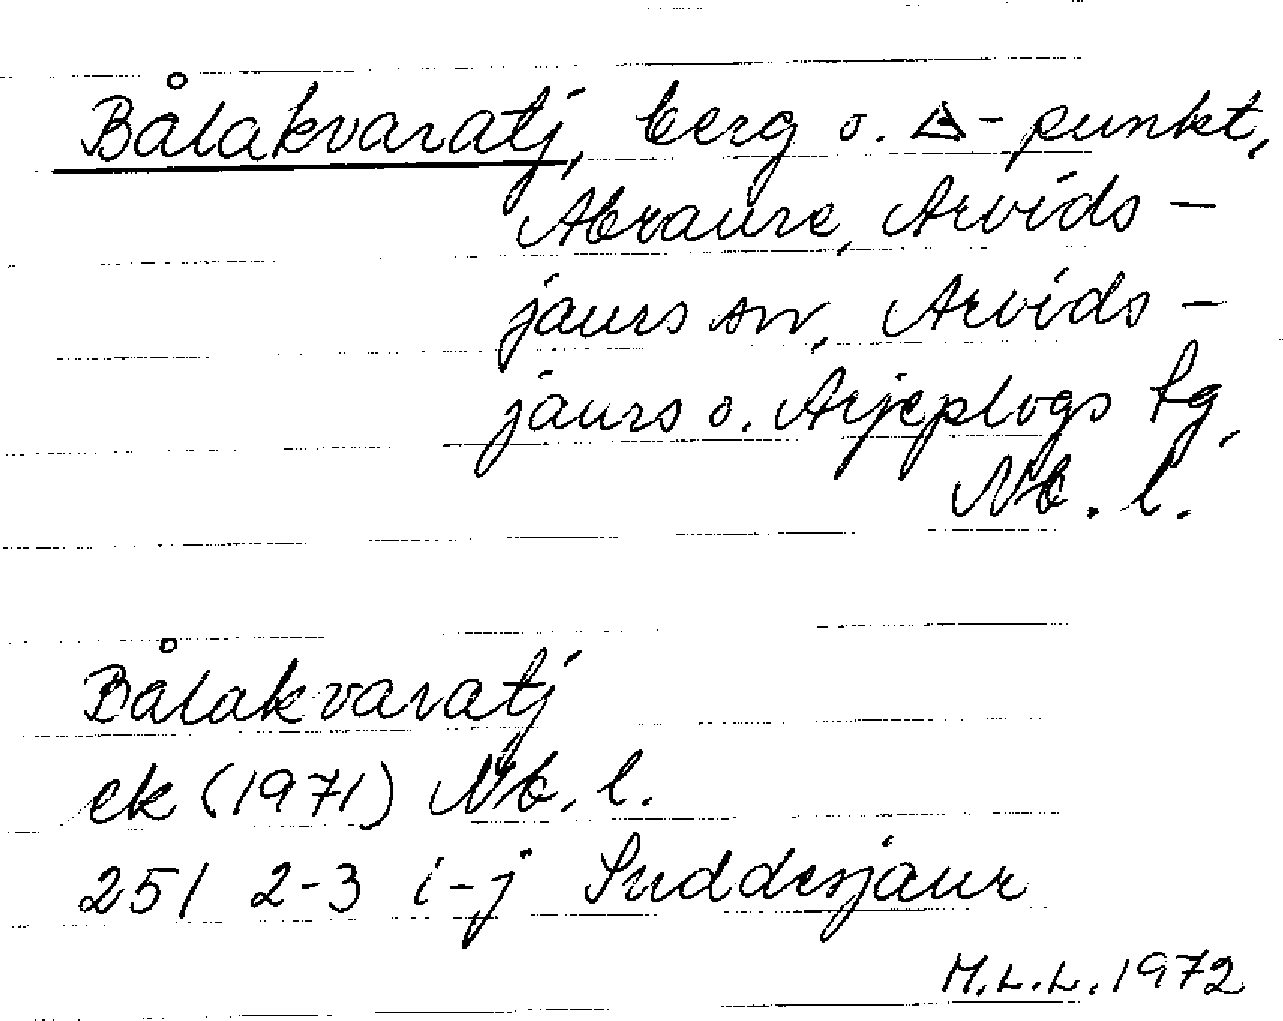 Bålakvaratj, berg o. △-punkt,
Abraure, Arvids-
jaurs sn, Arvids-
jaurs o. Arjeplogs tg,
Nb. l.
Bålakvaratj
ek (1971) Nb. l.
25 I 2-3 i-j Suddesjaur
M.L.L. 1972